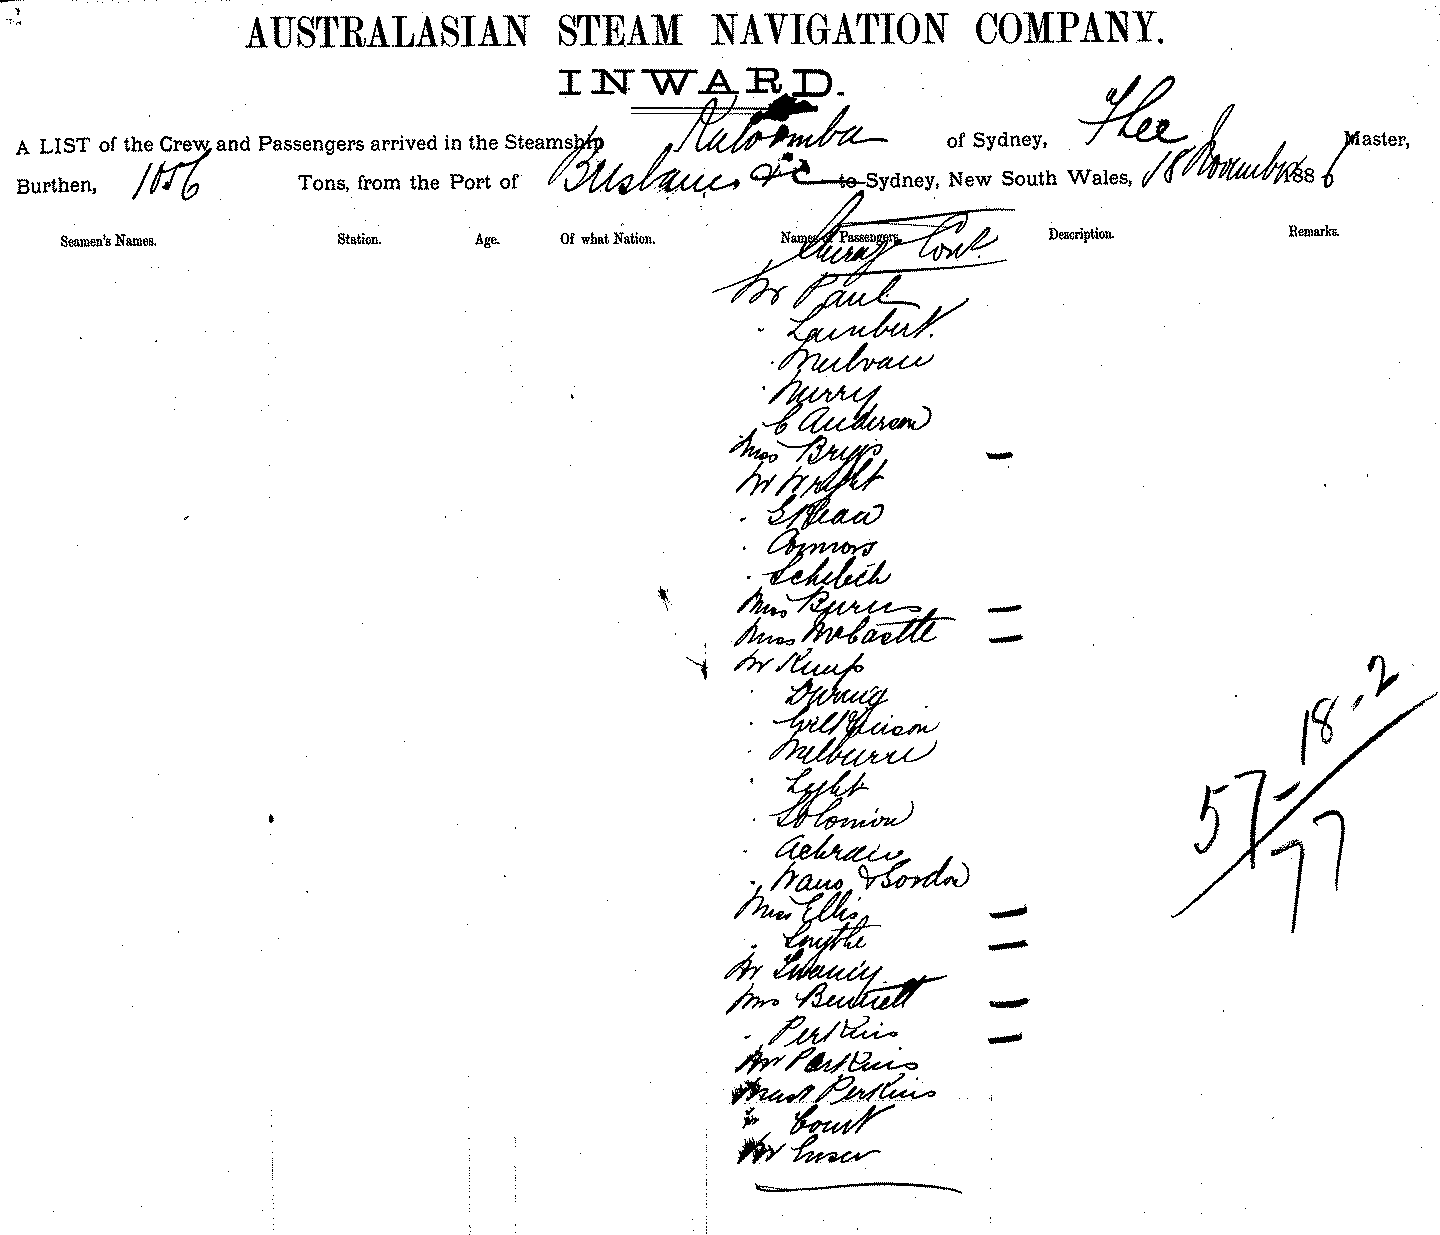 AUSTRALASIAN STEAM NAVIGATION COMPANY.
INWARD.
A LIST of the Crew and Passengers arrived in the Steamship Katoomba of Sydney, Master,
Burthen, 1056 Tons, from the Port of Brisbane &c to Sydney, New South Wales, 18 November 1886
Seamen's Names. Station. Age. Of what Nation. Names of Passengers. Description. Remarks.
Cont.
Mr Paul
" Lambert.
Murry
C Anderson
Miss Briggs
Mr Wright
Connors
Miss Burns
Miss McCastle
Mr Kemp
" Melburne
" Light
" Solomon
" & Gordon
Miss Ellis
" Smythe
Mr
Mrs Bennett
" Perkins
Mr Perkins
Mast Perkins
" Court
Mr
57 - 18 . 2
77